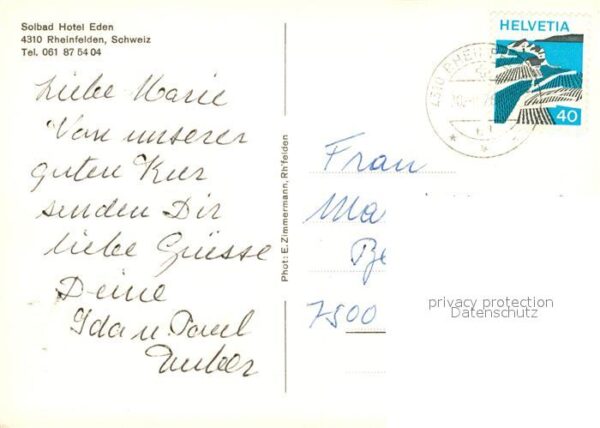 Solbad Hotel Eden
4310 Rheinfelden, Schweiz
Tel. 061 87 54 04
Liebe Marie
Von unserer
guten Kur
senden Dir
liebe Grüsse
Deine
Ida u Paul
Phot: E. Zimmermann, Rh'felden
HELVETIA
40
4310 RHEINFE
Frau
Ma
Be
7500
privacy protection
Datenschutz